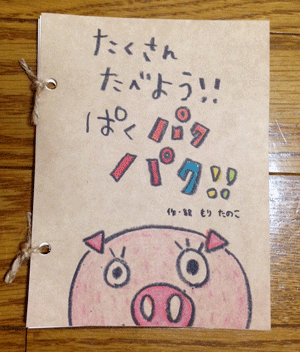 たくさん
たべよう!!
ぱくパク
パク!!
作・絵 もり たのこ